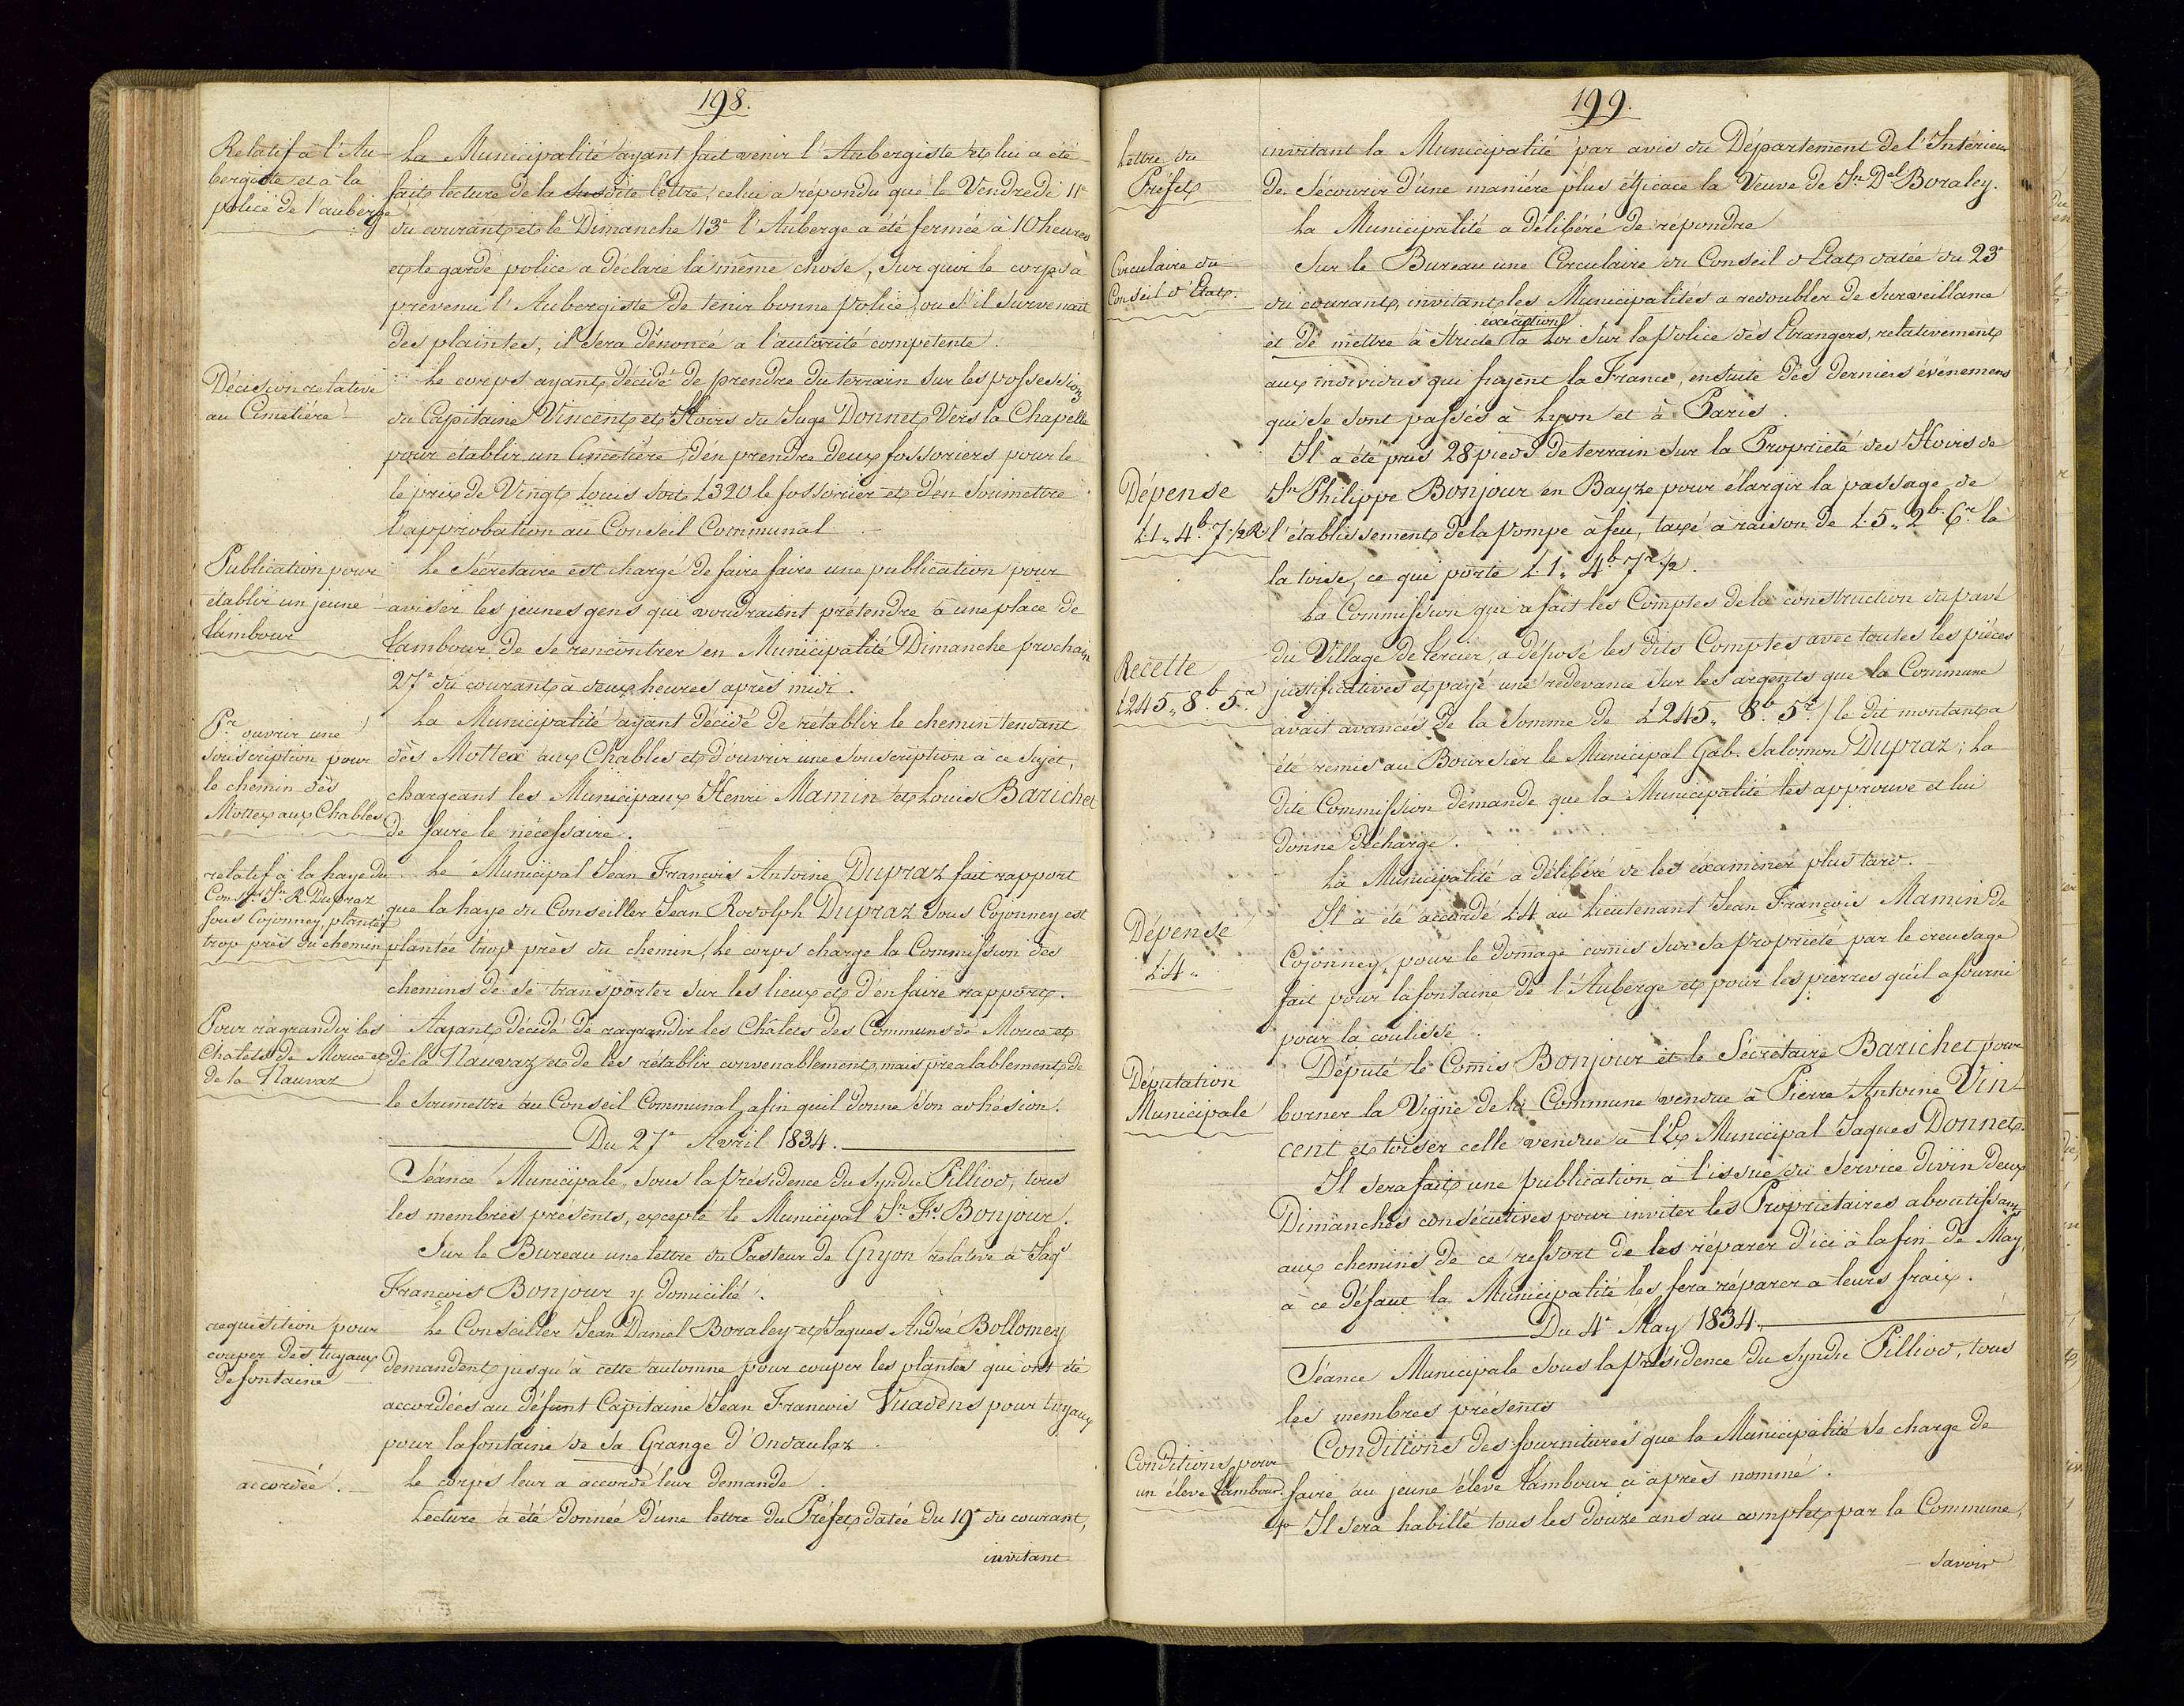 198.
Relatif à l'Au-
bergiste et à la
police de l'auberge
La Municipalité ayant fait venir l'Aubergiste et lui a été
faite lecture de la susdite lettre, celui a répondu que le Vendredi 11e
du courant et le Dimanche 13e l'Auberge a été fermée à 10 heures
et le garde police a déclaré la même chose, sur quoi le corps a
prévenu l'Aubergiste de tenir bonne police, ou s'il survenait
des plaintes, il sera dénoncé a l'autorité compétente.
Décision relative
au Cimetière
Le corps ayant décidé de prendre du terrain sur les possession
du Capitaine Vincent et Hoirs du Juge Donnet vers la Chapelle
pour établir un Cimetière, d'en prendre deux fossoriers pour le
le prix de Vingt Louis soit L 320 le fossorier et d'en soumettre
l'approbation au Conseil Communal
Publication pour
établir un jeune
tambour
Le Sécretaire est chargé de faire faire une publication pour
aviser les jeunes gens qui voudraient prétendre à une place de
tambour de se rencontrer en Municipalité Dimanche prochain
27e du courant à deux heures après midi.
Pr ouvrir une
souscription pour
le chemin dès
Mottex aux Chables
La Municipalité ayant décidé de rétablir le chemin tendant
dès Mottex aux Chables et d'ouvrir une souscription à ce sujet,
chargeant les Municipaux Henri Mamin et Louis Barichet
de faire le nécessaire.
relatif à la haye du
Conser Jn R Dupraz
sous Cojonney, plantée
trop près du chemin
Le Municipal Jean François Antoine Dupraz fait rapport
que la haye du Conseiller Jean Rodolph Dupraz sous Cojonney est
plantée trop près du chemin, le corps charge la Commission des
chemins de se transporter sur les lieux et d'en faire rapport.
Pour ragrandir les
Chalets de Mouce et
de la Nauvaz
Aayant décidé de ragrandir les Châlets des Communs de Mouce et
de la Nauvaz et de les rétablir convenablement, mais préalablement de
le soumettre au Conseil Communal afin quil donne son adhésion.
Du 27e Avril 1834.
Séance Municipale, sous la présidence du Syndic Pilliod, tous
les membres présents, excepté le Municipal Jn Fs Bonjour.
Sur le Bureau une lettre du Pasteur de Gryon relative à Jaqs
François Bonjour y domicilié.
requisition pour
couper des tuyaux
de fontaine
Le Conseiller Jean Daniel Boraley et Jaques André Bollomey
demandent jusqu'à cette automne pour couper les plantes qui ont été
accordées au défunt Capitaine Jean Francois Vuadens pour tuyaux
pour la fontaine de sa Grange d'Ondaulaz.
accordée.
Le corps leur a accordé leur demande.
Lecture a été donnée d'une lettre du Préfet datée du 19e du courant,
invitant
199.
Lettre du
Préfet
invitant la Municipalité par avis du Département de l'Intérieur
de sécourir d'une manière plus éficace la Veuve de Jn Dal Boraley.
La Municipalité a délibéré de répondre
Circulaire du
Conseil d'Etat.
Sur le Bureau une Circulaire du Conseil d'Etat datée du 23e
du courant, invitant les Municipalités a redoubler de surveillance
exécution
et de mettre à stricte la Loi sur la police des Etrangers, relativement
aux individus qui fuyent la France, ensuite des derniers événemens
qui se sont passés à Lyon et à Paris.
Il a été pris 28 pieds de terrain sur la Propriété des Hoirs de
Dépense
L 1,, 4b 7 1/2 R
Jn Philippe Bonjour en Bayze pour élargir la passage de
l'établissement de la pompe à feu, taxé a raison de L 5,, 2b 6r la
la toise, ce qui porte L 1,, 4b 7r 1/2.
La Commission qui a fait les Comptes de la construction du pavé
du Village de Cercier, a déposé les dits Comptes avec toutes les pièces
Recette
L 245,, 8b 5r
justificatives et payé une redevance sur les argents que la Commune
avait avancés de la somme de L 245,, 8b 5r / le dit montant a
été remis au Boursier le Municipal Gab. Salomon Dupraz; la
dite Commission demande que la Municipalité les approuve et lui
donne décharge.
La Municipalité a délibéré de les examiner plus tard.
Dépense
L 4,,
Il a été accordé L 4 au Lieutenant Jean François Mamin de
Cojonney, pour le domage comis sur sa propriété par le creusage
fait pour la fontaine de l'Auberge et pour les pierres quil a fourni
pour la coulisse.
Députation
Municipale
Député le Comis Bonjour et le Sécretaire Barichet pour
borner la Vigne de la Commune vendue à Pierre Antoine Vin-
cent et toiser celle vendue à l'Ex Municipal Jaques Donnet.
Il sera fait une publication à l'issue du service divin deux
Dimanches consécutives pour inviter les Propriétaires aboutissants
aux chemins de ce ressort de les réparer d'ici à la fin de May,
à ce défaut la Municipalité les fera réparer a leurs fraix.
Du 4e May 1834.
Séance Municipale sous la présidence du Syndic Pilliod, tous
les membres présents
Conditions pour
un élève tambour.
Conditions des fournitures que la Municipalité se charge de
faire au jeune élève tambour ci après nommé.
1o Il sera habillé tous les douze ans au complet par la Commune,
savoir